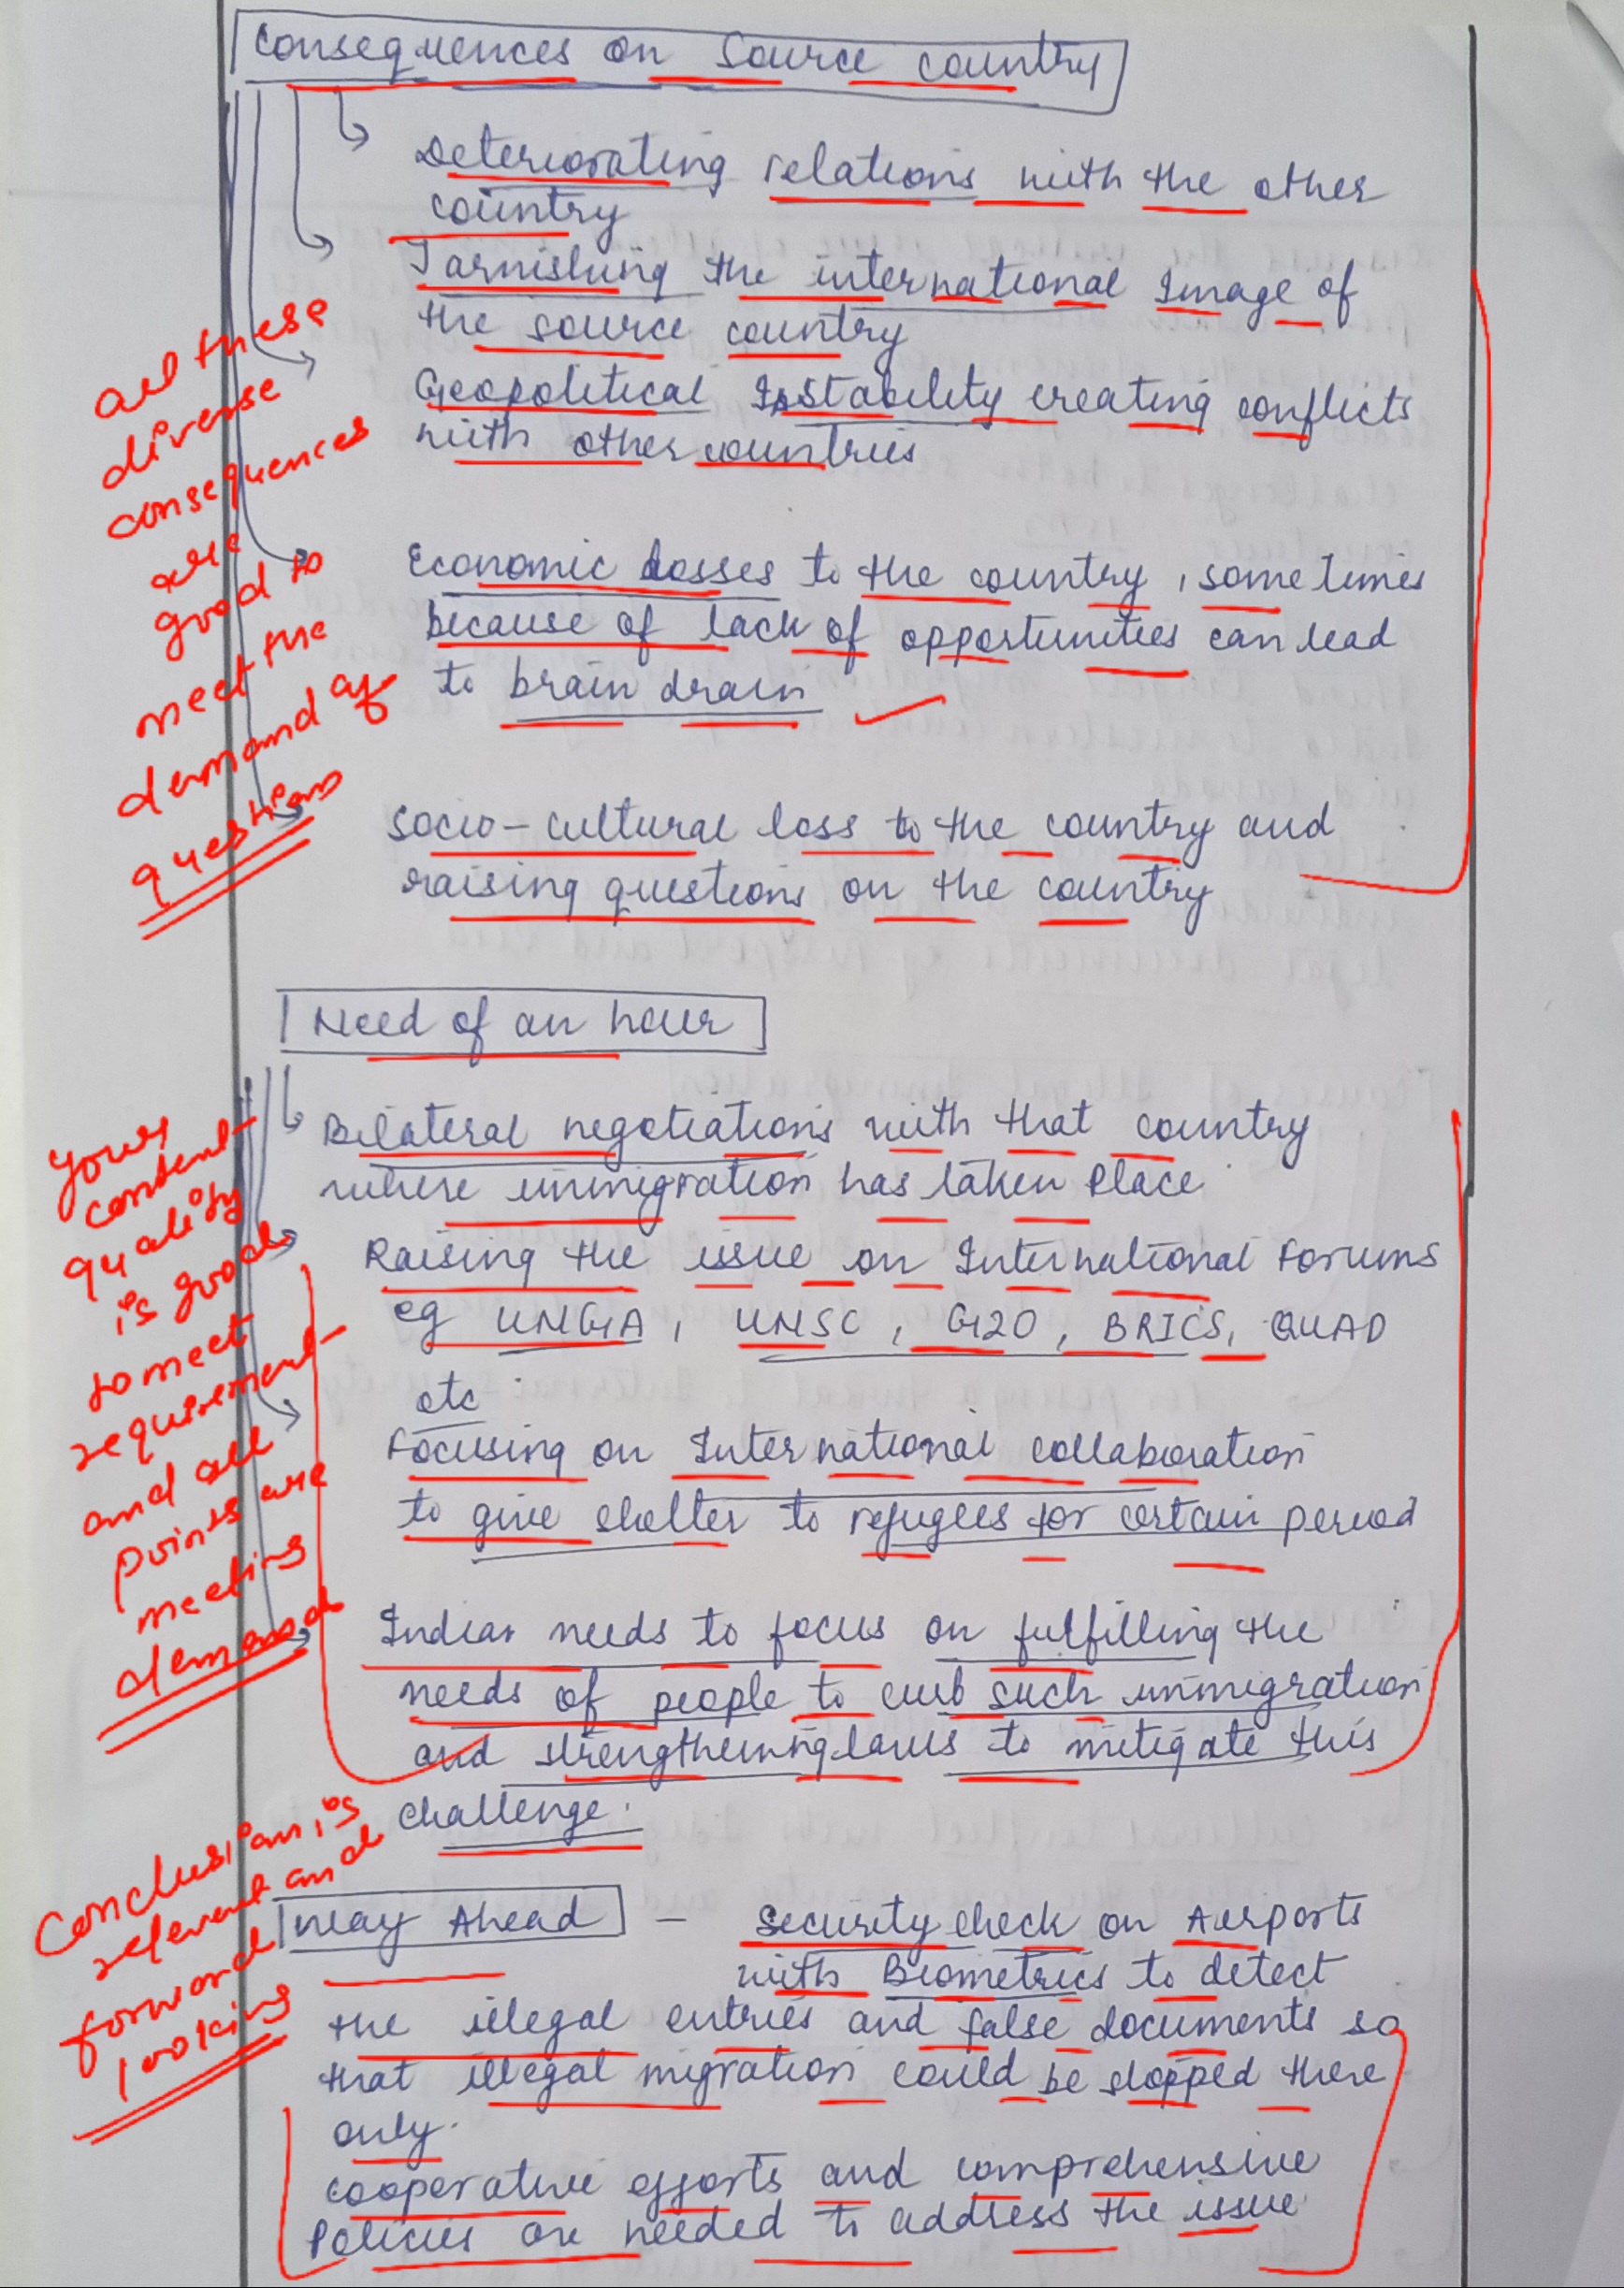 Consequences on Source country
Deteriorating relations with the other
country
Tarnishing the international Image of
the source country
Geopolitical Instability creating conflicts
with other countries
Economic losses to the country, sometimes
because of lack of opportunities can lead
to brain drain
Socio-cultural loss to the country and
raising questions on the country
all these
diverse
consequences
are
good to
meet the
demand of
question
Need of an hour
Bilateral negotiations with that country
where immigration has taken place
Raising the issue on International Forums
eg UNGA, UNSC, G20, BRICS, QUAD
etc
Focusing on International collaboration
to give shelter to refugees for certain period
Indian needs to focus on fulfilling the
needs of people to curb such immigration
and strengthening laws to mitigate this
challenge.
your
content
quality
is good
to meet
requirement
and all
points are
meeting
demand
Way Ahead - Security check on Airports
with Biometrics to detect
the illegal entries and false documents so
that illegal migration could be stopped there
only.
Cooperative efforts and comprehensive
Policies are needed to address the issue
Conclusion is
relevant and
forward
looking